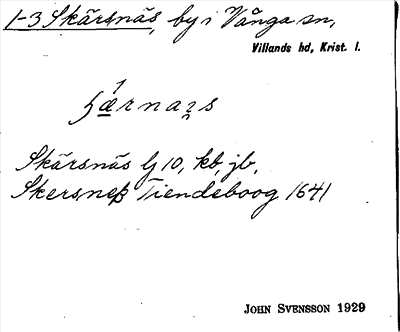 1-3 Skärsnäs, by i Vånga sn,
Villands hd, Krist. l.
Skärsnäs lj 10, kb, jb,
Skersneß Tiendeboog 1641
JOHN SVENSSON 1929